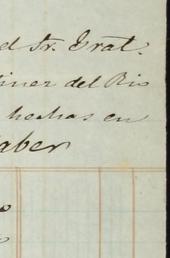 el Sr. Trat.
tinez del Rio
hechas en
aber
o